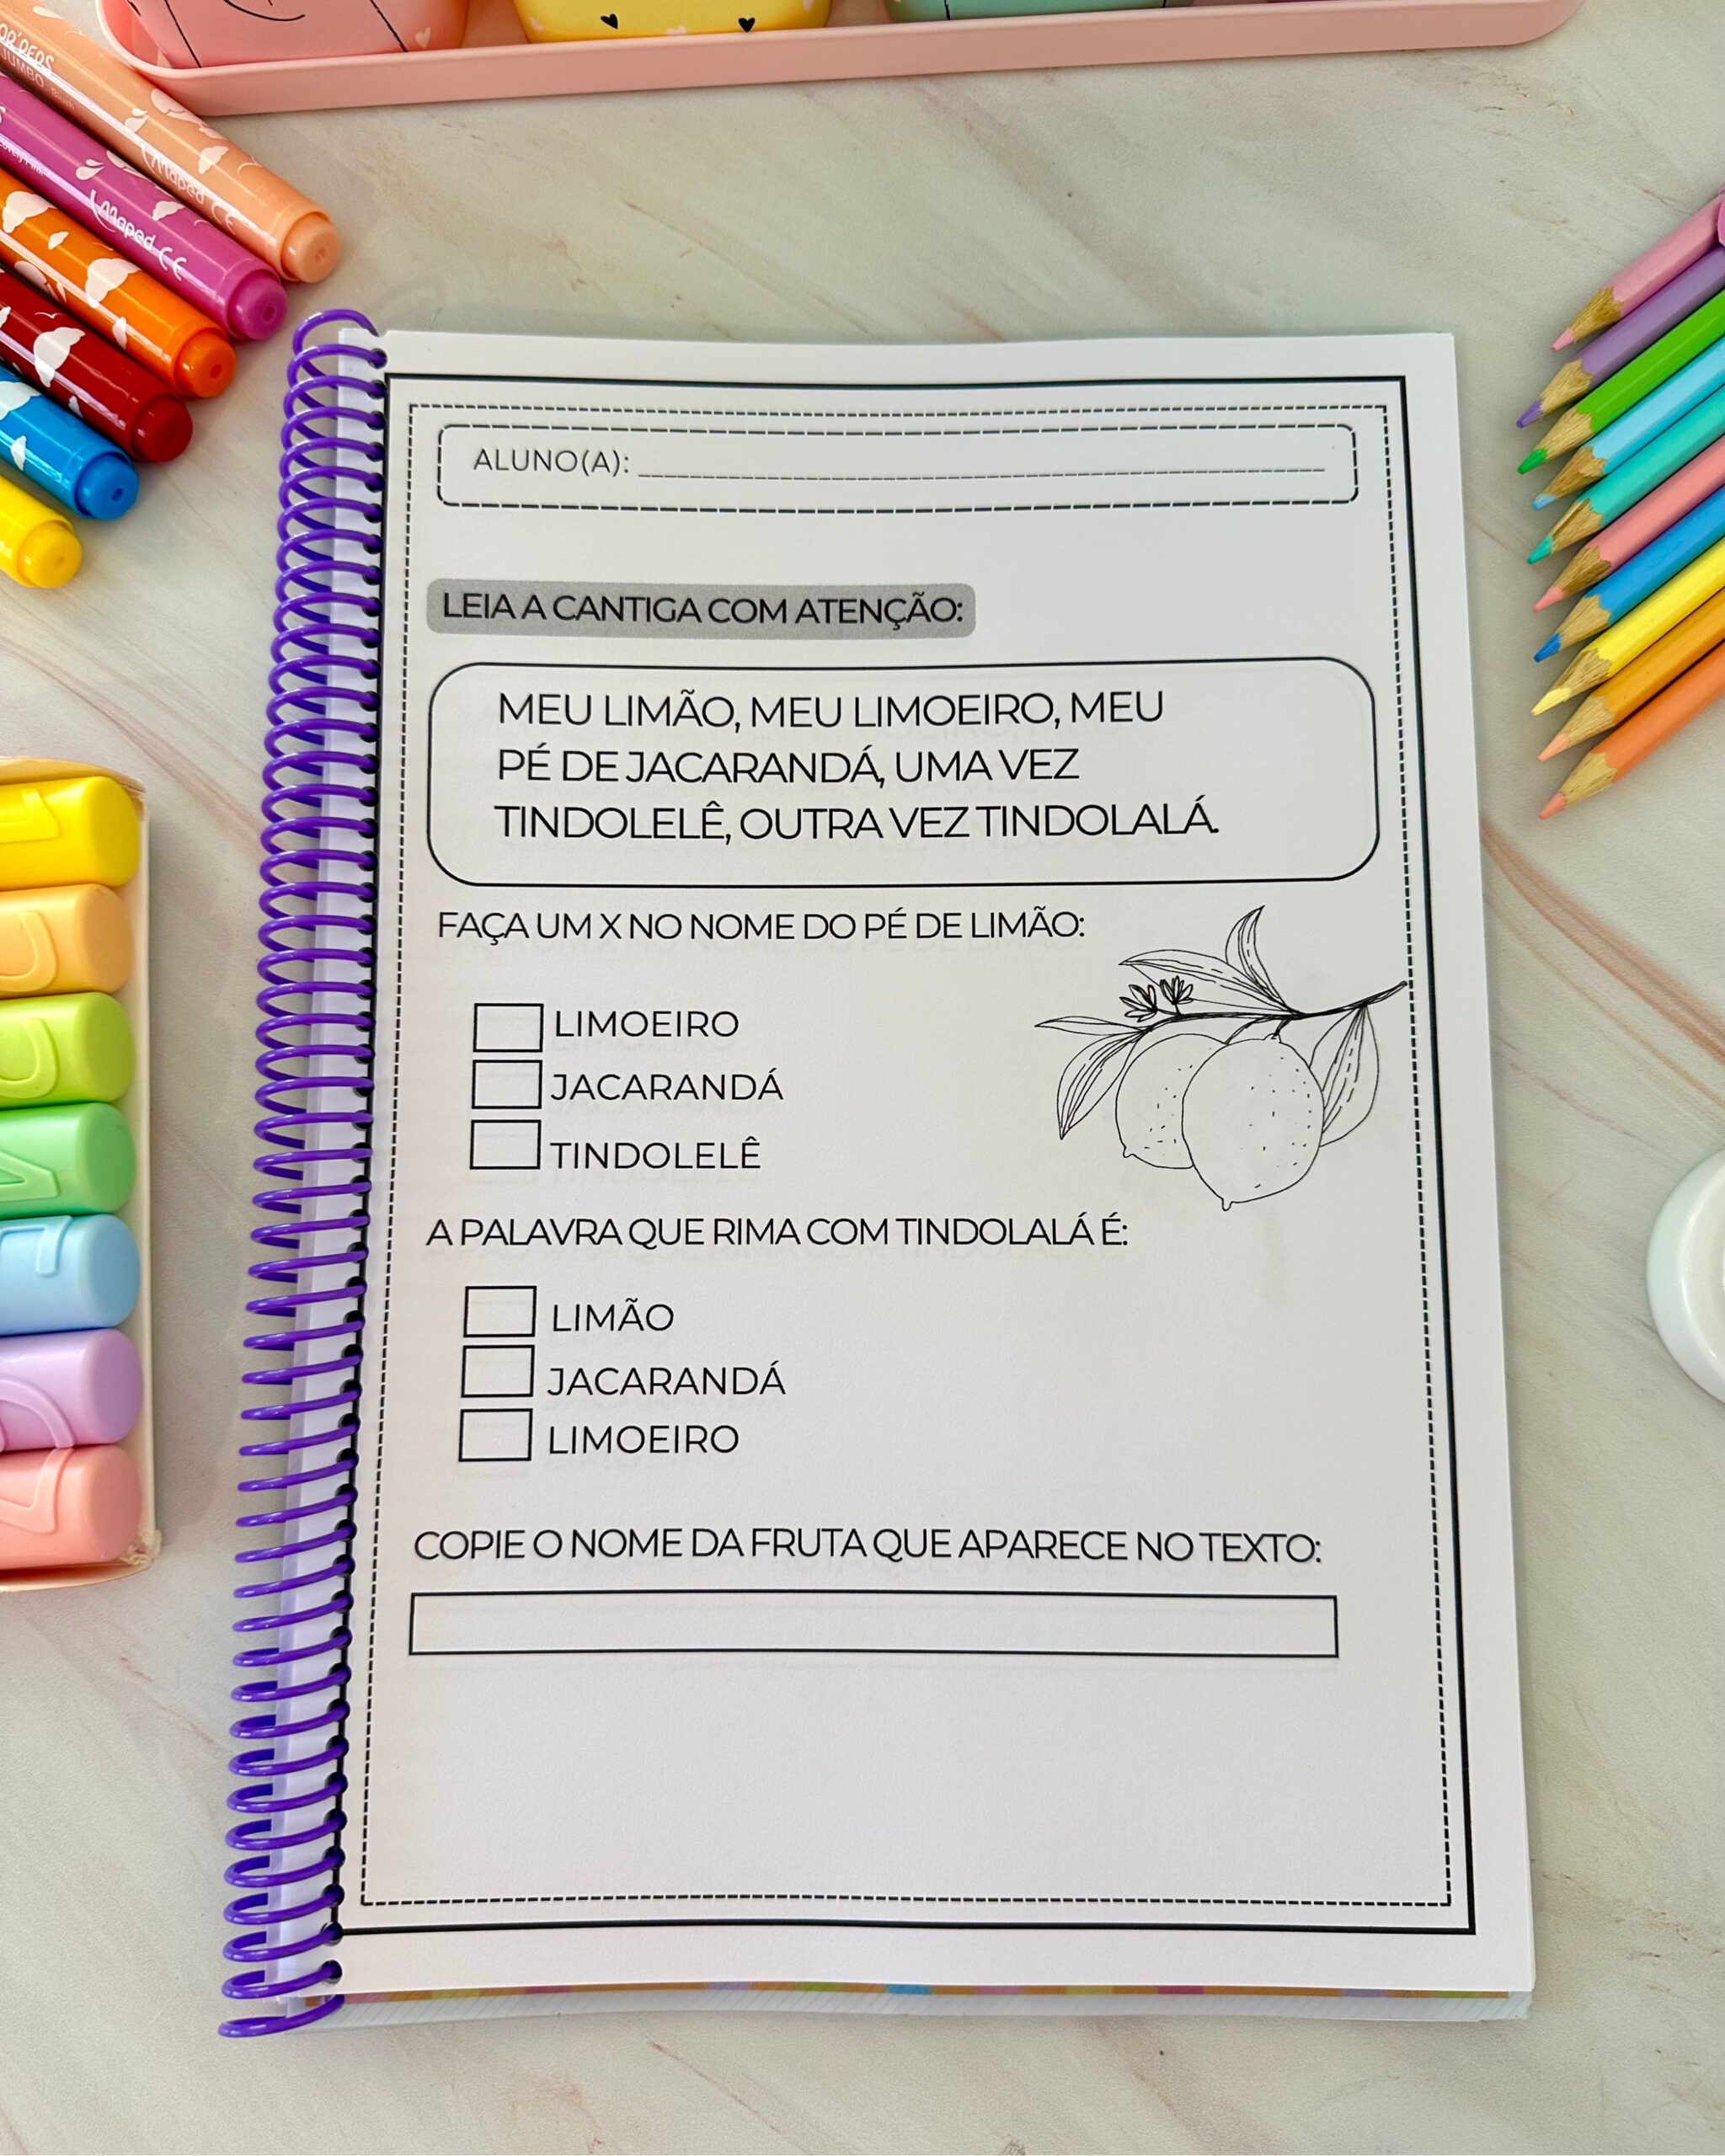 OR'PEPS
JUMBO
Maped CE
Maped CE
ALUNO(A):
LEIA A CANTIGA COM ATENÇÃO:
MEU LIMÃO, MEU LIMOEIRO, MEU
PÉ DE JACARANDÁ, UMA VEZ
TINDOLELÊ, OUTRA VEZ TINDOLALÁ.
FAÇA UM X NO NOME DO PÉ DE LIMÃO:
LIMOEIRO
JACARANDÁ
TINDOLELÊ
A PALAVRA QUE RIMA COM TINDOLALÁ É:
LIMÃO
JACARANDÁ
LIMOEIRO
COPIE O NOME DA FRUTA QUE APARECE NO TEXTO: